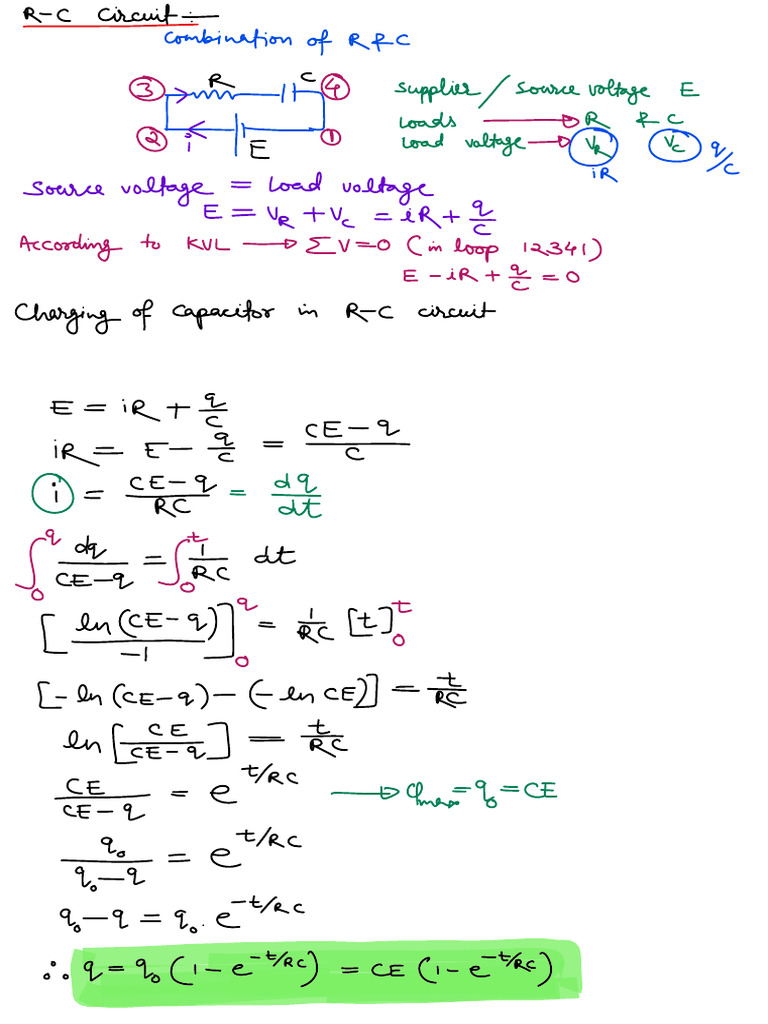 R-C Circuit:-
Combination of R & C
3 R C 4
2 i E 1
Supplier / Source voltage E
Loads → R & C
Load voltage → V_R V_C q/C
iR
Source voltage = Load voltage
E = V_R + V_C = iR + q/C
According to KVL → ΣV=0 (in loop 12341)
E - iR + q/C = 0
Charging of Capacitor in R-C circuit
E = iR + q/C
iR = E - q/C = (CE - q)/C
i = (CE - q)/RC = dq/dt
∫_0^q dq/(CE-q) = ∫_0^t 1/RC dt
[ln(CE-q)/-1]_0^q = 1/RC [t]_0^t
[-ln(CE-q) - (-ln CE)] = t/RC
ln[CE/(CE-q)] = t/RC
CE/(CE-q) = e^{t/RC} → q_max = q_0 = CE
q_0/(q_0-q) = e^{t/RC}
q_0-q = q_0. e^{-t/RC}
∴ q = q_0 (1 - e^{-t/RC}) = CE (1 - e^{-t/RC})